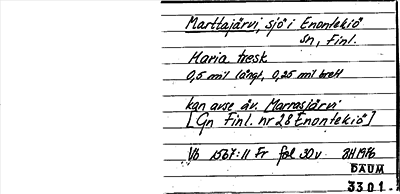 Marttajärvi, sjö i Enontekiö
sn, Finl.
Maria tresk
0,5 mil långt, 0,25 mil brett
kan avse äv. Marrasjärvi
[Gn Finl. nr 28 Enontekiö]
Vb 1567:11 Fr fol 30 v BH 1976
DAUM
3301